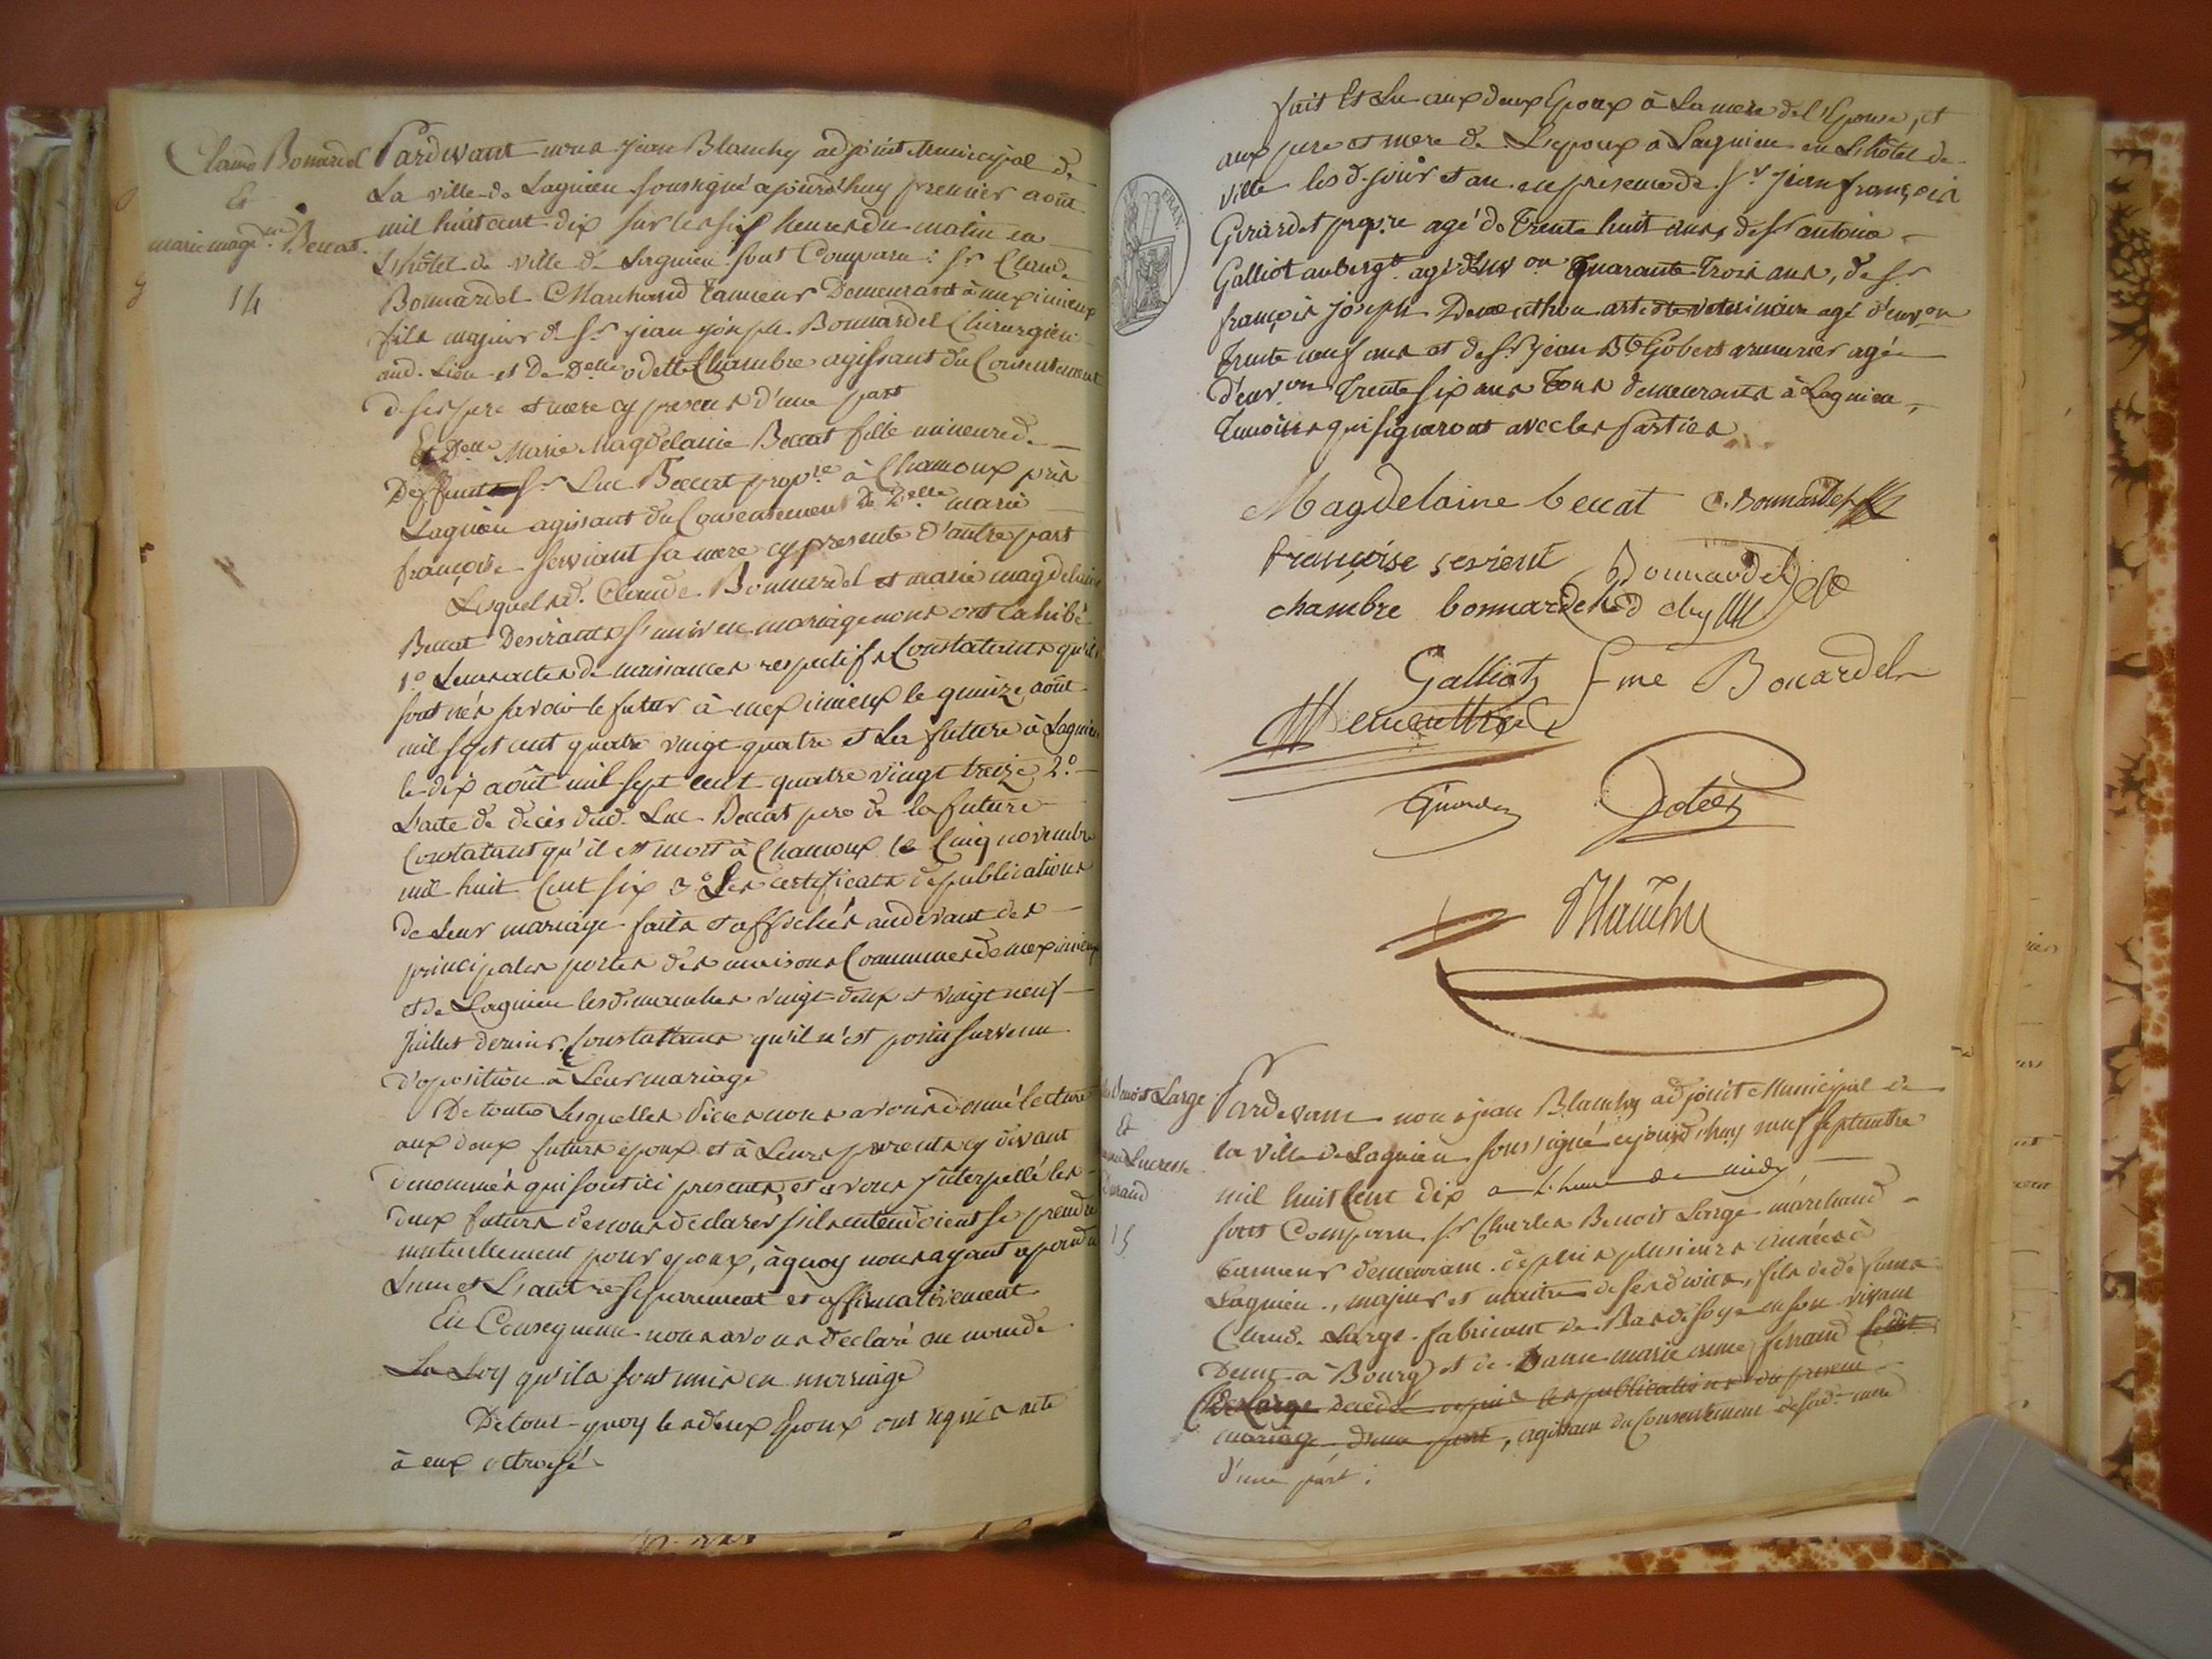 Claude Bonnardel
Et
marie magd.ne Beccat.
14
Pardevant nous jean Blanchy adjoint Municipal de
La ville de Lagnieu soussigné ajourd'huy premier août
mil huit cent dix sur les six heures du matin en
L'hôtel de ville de Lagnieu sont Comparu : Sr Claude
Bonnardel Marchand tanneur Demeurant à meximieux
fils majeur de Sr jean joseph Bonnardel Chirurgien
aud. Lieu et De Delle odette Chambre agissant du Consentement
de ses pere et mere cy presens d'une part
Et Delle Marie Magdelaine Beccat fille mineure de
Deffunt Sr Luc Beccat prop.re à Chamoux près
Lagnieu agissant du Consentement de Delle marie
françoise serviant sa mere cy presente d'autre part
Lesquels d. Claude Bonnardel et marie magdelaine
Beccat Desirants s'unir en mariage nous ont Exhibé
1o Leurs actes de naissances respectifs Constatants qu'ils
sont nés savoir le futur à meximieux le quinze août
mil sept cent quatre vingt quatre et La future à Lagnieu
le dix août mil sept cent quatre vingt treize, 2o
L'acte de décès dud. Luc Beccat pere de la future
Constatant qu'il est mort à Chamoux le Cinq novembre
mil huit Cent six 3o Les certificats de publications
de Leur mariage faits et affichés audevant des
principales portes des maisons Communes de meximieux
et de Lagnieu les dimanches vingt deux et vingt neuf
juillet dernier. Constatants qu'il n'est point survenu
d'oposition à Leur mariage
De toutes Lesquelles pieces nous avons donné lecture
aux deux futurs époux et à Leurs parents cy devant
denommés qui sont ici presents, et avons interpellé les
deux futurs de nous declarer s'ils entendoient se prendre
mutuellement pour epoux, à quoy nous ayant repondu
L'un et L'autre separement et affirmativement
En Consequence nous avons déclaré au nom de
La Loy qu'ils sont unis en mariage
De tout quoy les deux Epoux ont requis acte
à eux octroyé
fait Et Lu aux deux Epoux à La mere de l'Epouse, et
aux pere et mere de L'epoux à Lagnieu en L'hôtel de
ville les d. jour et an en presence de Sr jean françois
Girardet prop.re agé de trente huit ans, de Sr antoine
Galliot aubergte agé d'env.on quarante trois ans, de Sr
françois joseph artiste veterinaire agé d'env.on
trente neuf ans et de Sr jean Bte Gobert armurier agé
d'env.on trente six ans tous demeurants à Lagnieu,
temoins qui signeront avec les parties
FRAN.
Magdelaine beccat C. Bonnardel
francoise servient Bonnardel
chambre bonnardel
Galliot fme Bonardel
Blanchy
Benoit Large
Et
Lucresse
Durand
15
Pardevant nous jean Blanchy adjoint Municipal de
la ville de Lagnieu soussigné ajourd'huy neuf septembre
mil huit Cent dix a L'heure de midy
sont Comparu Sr Charles Benoit Large marchand
tanneur demeurant depuis plusieurs années à
Lagnieu, majeur et maitre de ses droits, fils de deffunt
Claude Large fabricant de Bas de soye en son vivant
Demt à Bourg et de Dame marie anne ferrand ledit
Cde Large decedé depuis les publications du present
mariage d'une part, agissant du Consentement de sad. mere
d'une part ;